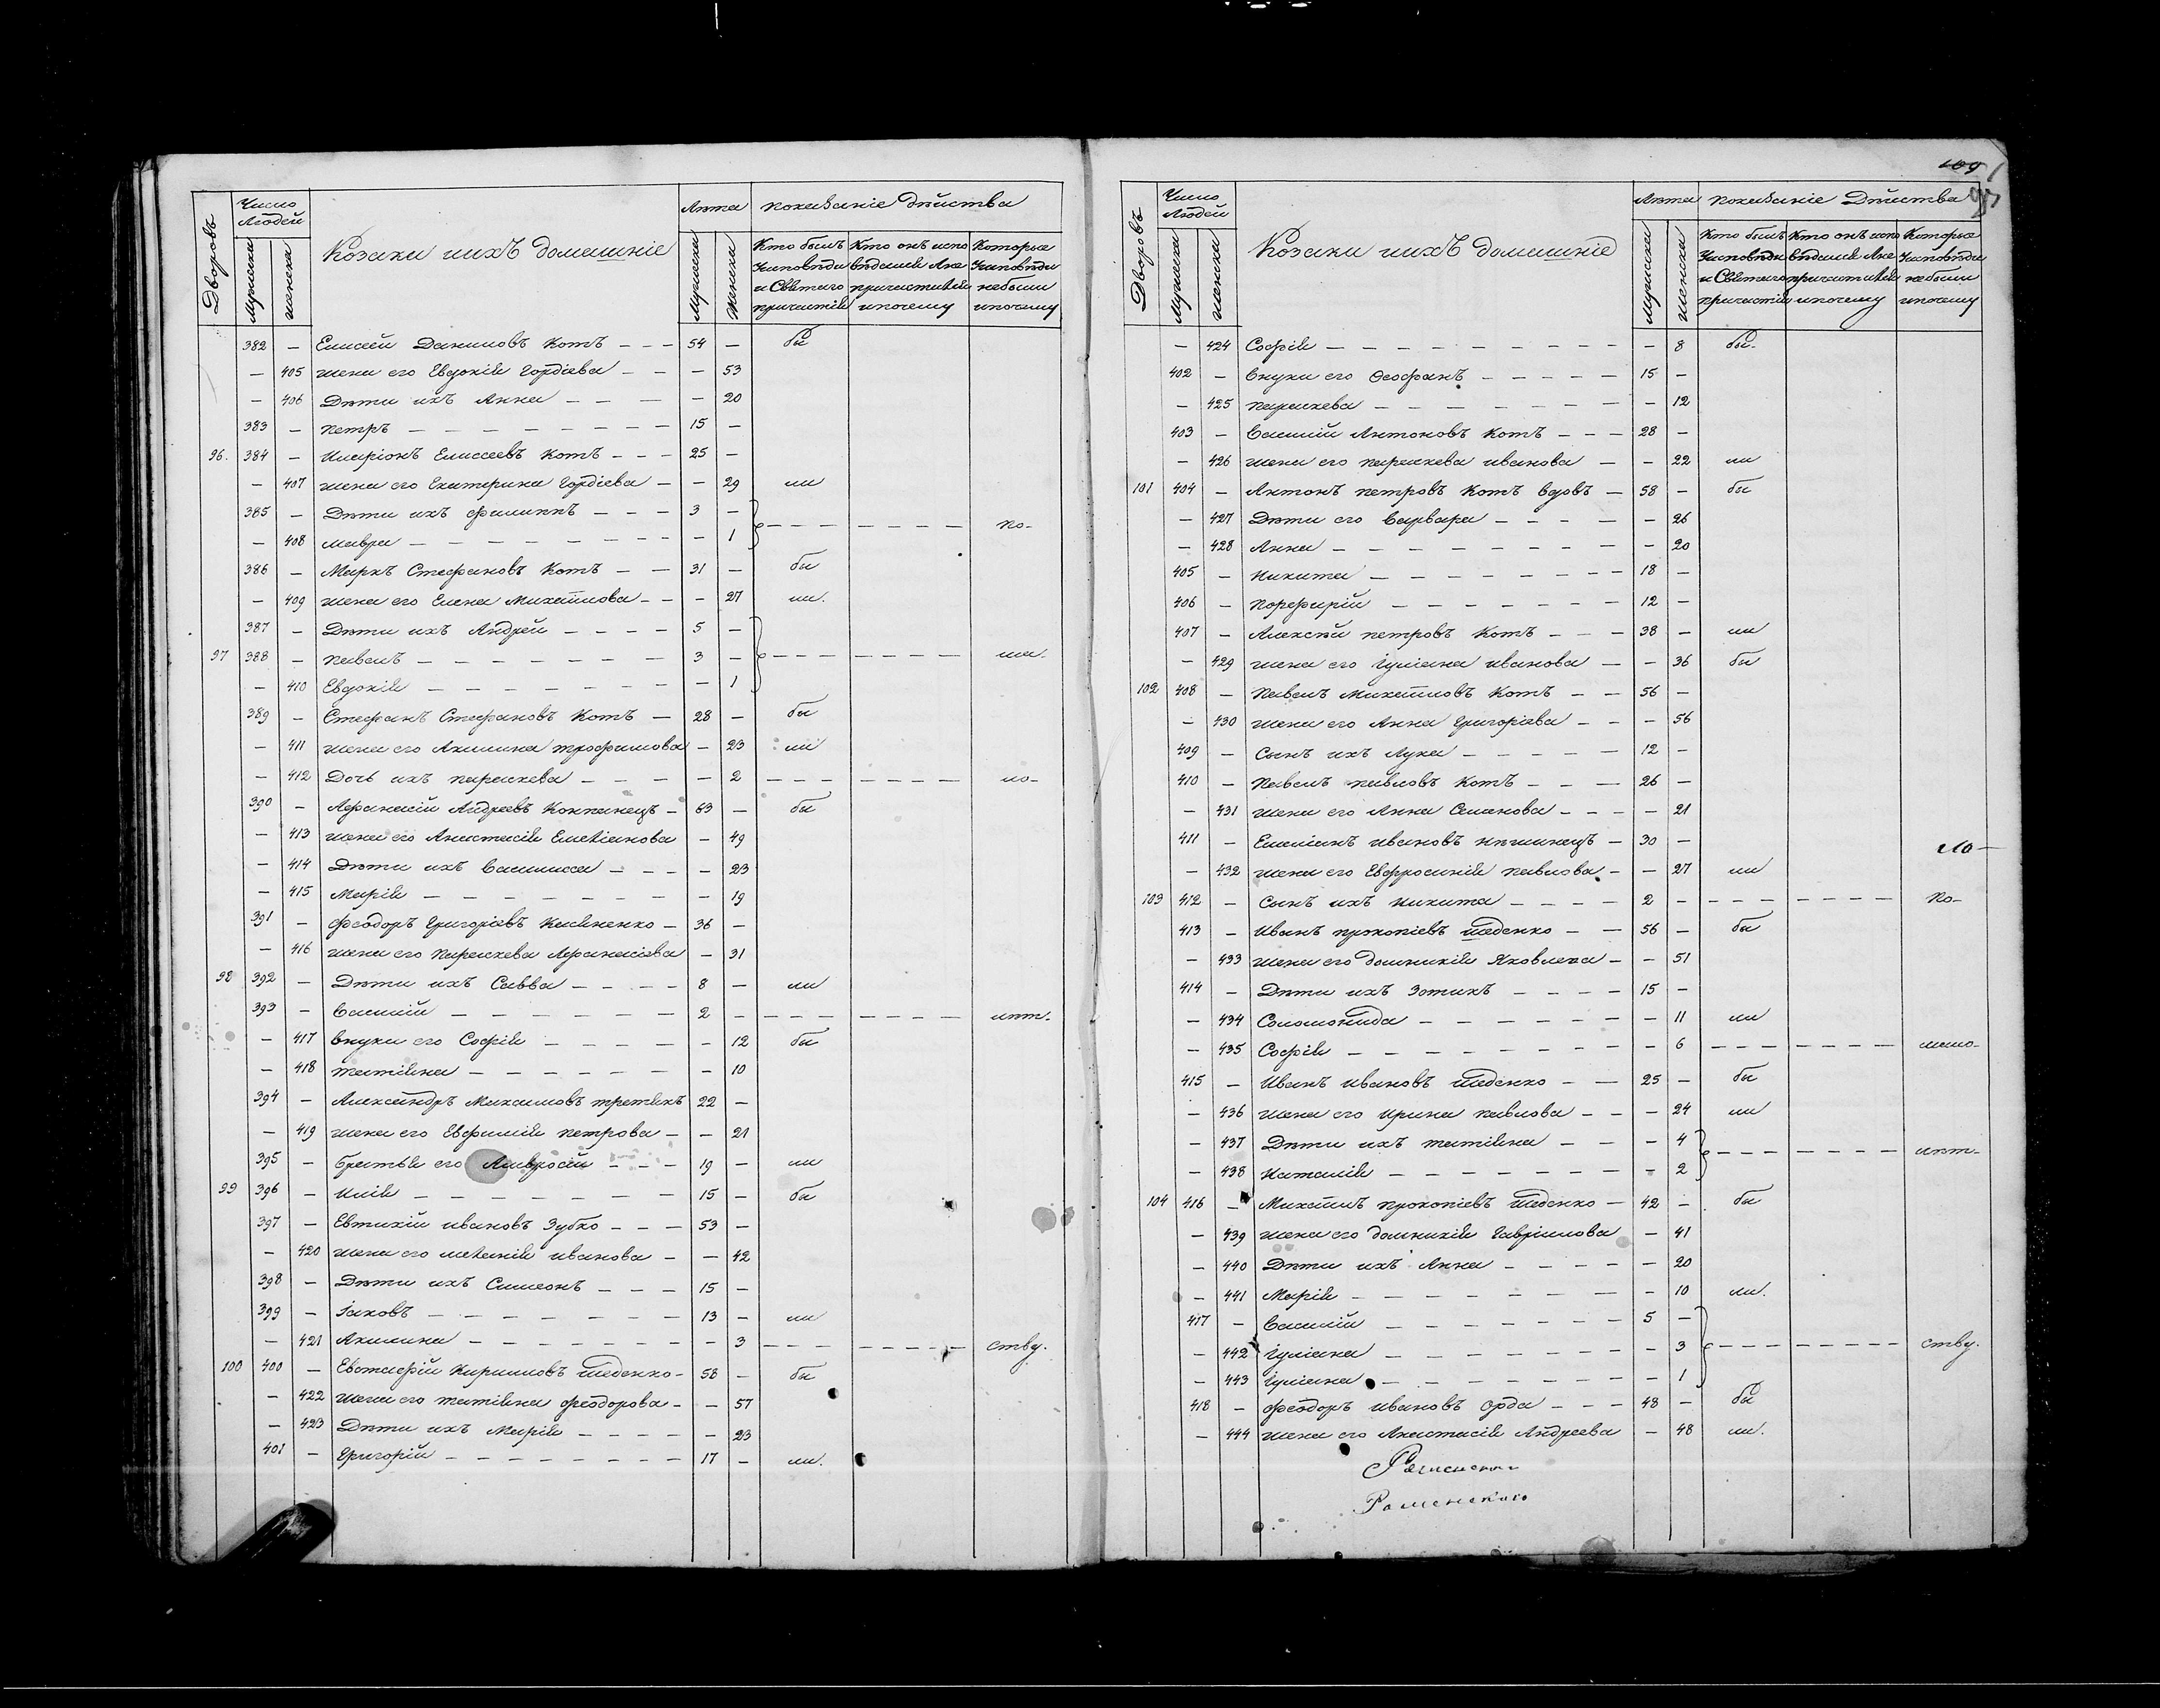 Дворовъ
Число Людей
Мужеска
женска
Козаки ихъ домашніе
Лѣта
Мужеска
Женска
показаніе дѣйства
Кто былъ Уисповѣди и Святаго причастія
Кто онъ испо вѣдался Ане причастился ипочему
Которые Уисповѣди небыли ипочему
382 — Елисей Даниловъ Котъ — — — 54 — бы
— 405 жена его Евдокія Гордіева — — — 53
— 406 Дѣти ихъ Анна — — — — 20
383 — петръ — — — — 15 —
96. 384 — Иларіонъ Елисеевъ Котъ — — — 25 —
— 407 жена его Екатерина Гордіева — — 29 ли
385 — Дѣти ихъ филиппъ — — — 3 —
— 408 мавра — — — — — 1 — — — — — — по-
386 — Маркъ Стефановъ Котъ — — 31 — бы
— 409 жена его Елена Михайлова — — — 27 ли.
387 — Дѣти ихъ Андрей — — — — 5 —
97 388 — павелъ — — — — 3 — — — — — — —
— 410 Евдокія — — — — — 1
389 — Стефанъ Стефановъ Котъ — 28 — бы
— 411 жена его Акилина трофимова — 23 ли
— 412 Дочь ихъ параскева — — — — 2 — — — — — —
390 — Афанасій Андреевъ Коппанецъ — 63 — бы
— 413 жена его Анастасія Емеліанова — 49
— 414 Дѣти ихъ Василиса — — — — 23
— 415 Марія — — — — — 19
391 — феодоръ Григоріевъ — 36 —
— 416 жена его Параскева Афанасіева — 31
98 392 — Дѣти ихъ Савва — — — — 8 — ли
393 — Василій — — — — 2 — — — — — — — лѣт-
— 417 внуки его Софія — — — — — 12 бы
— 418 татіана — — — — — 10
394 — Александръ Максимовъ третякъ 22 —
— 419 жена его Евфимія петрова — — 21
395 — братья его Амвросій — — — 19 — ли
99 396 — Илія — — — — 15 — бы
397 — Евтихій ивановъ Зубко — — — 53 —
— 420 жена его меланія иванова — — 42
398 — Дѣти ихъ Симеонъ — — — 15 —
399 — Іаковъ — — — — 13 — ли
— 421 Акилина — — — — — 3 — — — — — — ству.
100 400 — Евстафій Кирилловъ шеденко — 58 — бы
— 422 жена его татіана феодорова — — 57
— 423 Дѣти ихъ Марія — — — — — 23
401 — Григорій — — — — 17 — ли.
109
Дворовъ
Число Людей
Мужеска
женска
Козаки ихъ домашніе
Лѣта
Мужеска
Женска
показаніе Дѣйства
Кто былъ Уисповѣди и Святаго причастія
Кто онъ испо вѣдался Ане причастился ипочему
Которые Уисповѣди небыли ипочему
— 424 Софія — — — — — 8 бы-
402 — внуки его Ѳеофанъ — — — — 15 —
— 425 параскева — — — — — 12
403 — Василій Антоновъ Котъ — — — 28 —
— 426 жена его параскева иванова — — 22 ли
101 404 — Антонъ петровъ Котъ вдовъ — 58 — бы
— 427 Дѣти его Варвара — — — — — 26
— 428 Анна — — — — — 20
405 — никита — — — — 18 —
406 — порфирій — — — — 12 —
407 — Алексѣй петровъ Котъ — — — 38 — ли
— 429 жена его Іуліана иванова — — 36 бы
102 408 — Павелъ Михайловъ Котъ — — 56 —
— 430 жена его Анна Григоріева — — — 56
409 — Сынъ ихъ Лука — — — — 12 —
410 — Павелъ павловъ Котъ — — — 26 —
— 431 жена его Анна Семенова — — — — 21
411 — Емеліанъ ивановъ — 30 — ло—
— 432 жена его Евфросинія павлова — — 27 ли
103 412 — Сынъ ихъ никита — — — — 2 — — — — — — — по-
413 — Иванъ прокопіевъ шеденко — — 56 — бы
— 433 жена его домникія Яковлева — — 51
414 — Дѣти ихъ Зотикъ — — — — 15 —
— 434 Соломонида — — — — — 11 ли
— 435 Софія — — — — — 6 — — — — — —
415 — Иванъ ивановъ шеденко — — 25 — бы
— 436 жена его ирина павлова — — — 24 ли
— 437 Дѣти ихъ татіана — — — 4
— 438 наталія — — — — — 2 — — — — — — лѣт-
104 416 — Михаилъ прокопіевъ шеденко — 42 — бы
— 439 жена его домникія Гавріилова — 41
— 440 Дѣти ихъ Анна — — — — — 20
— 441 Марія — — — — — 10 ли.
417 — Василій — — — — 5 —
— 442 Іуліана — — — — — 3 — — — — — — ству.
— 443 Іуліана — — — — — 1
418 — феодоръ ивановъ Орда — — — 48 — бы
— 444 жена его Анастасія Андреева — 48 ли.
Роменского